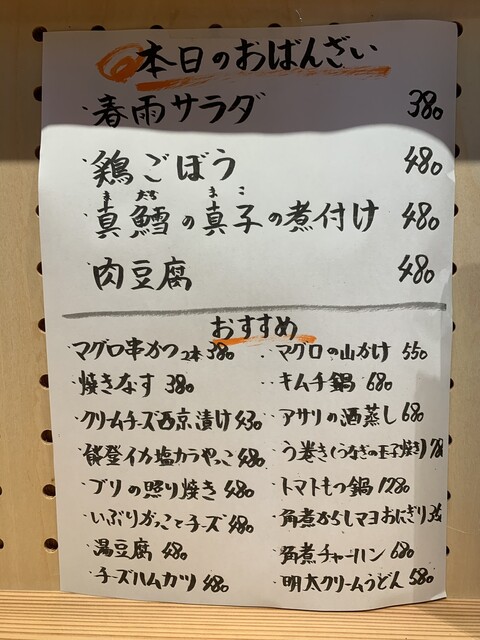 本日のおばんざい
・春雨サラダ 380
・鶏ごぼう 480
・真鱈の真子の煮付け 480
・肉豆腐 480
おすすめ
マグロ串かつ2本 380
・焼きなす 380
・クリームチーズ西京漬け 430
・能登イカ塩カラやっこ 480
・ブリの照り焼き 480
・いぶりがっことチーズ 480
・湯豆腐 480
・チーズハムカツ 480
・マグロの山かけ 550
・キムチ鍋 680
・アサリの酒蒸し 680
・う巻き(うなぎの玉子焼き)
・トマトもつ鍋 1280
・角煮からしマヨおにぎり
・角煮チャーハン 680
・明太クリームうどん 580